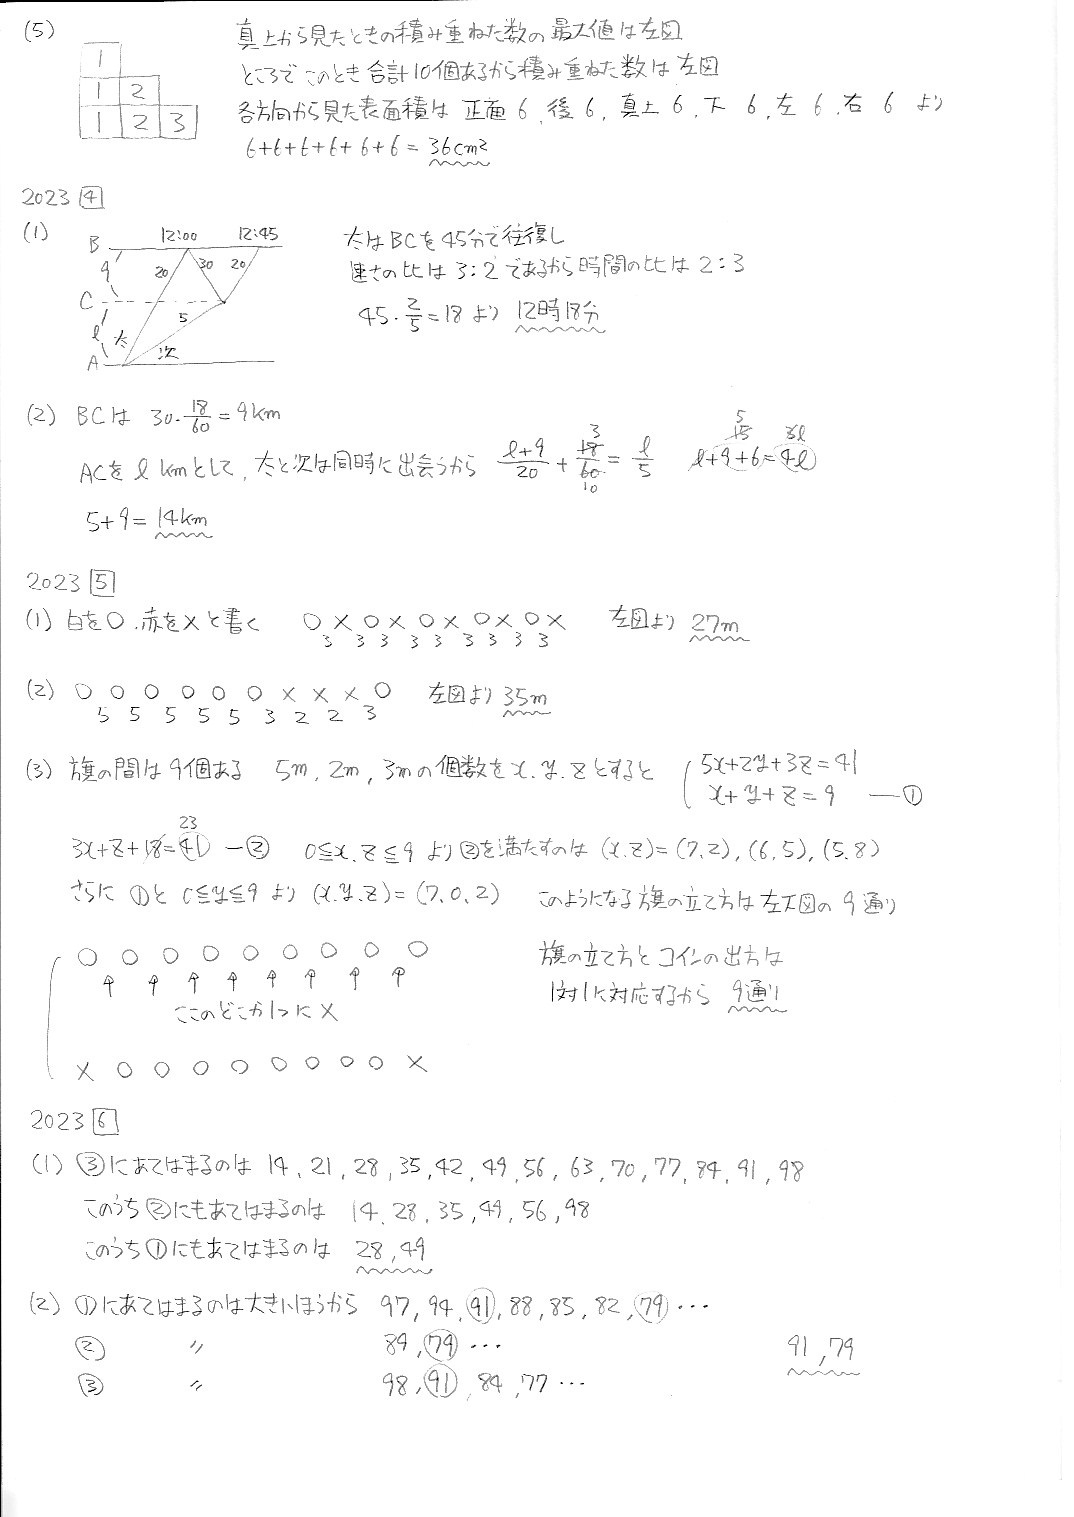 (5) 真上から見たときの積み重ねた数の最大値は左図
1
ところでこのとき合計10個あるから積み重ねた数は左図
1 2
各方向から見た表面積は 正面6, 後6, 真上6, 下6, 左6, 右6 より
1 2 3
6+6+6+6+6+6=36cm²
2023 4
(1)
B 12:00 12:45
9 20 30 20
C
5
l 太
A 次
太はBCを45分で往復し
速さの比は3:2であるから時間の比は2:3
45・2/5=18より 12時18分
(2) BCは 30・18/60=9km
ACをl kmとして, 太と次は同時に出会うから (l+9)/20 + 18/60 = l/5 3 10 l+9+6=4l 5 15 3l
5+9=14km
2023 5
(1) 白を○, 赤を×と書く ○×○×○×○×○× 左図より 27m
3 3 3 3 3 3 3 3 3
(2) ○ ○ ○ ○ ○ ○ × × × ○ 左図より 35m
5 5 5 5 5 3 2 2 3
(3) 旗の間は9個ある 5m, 2m, 3mの個数をx, y, zとすると 5x+2y+3z=41
x+y+z=9 ―①
23
3x+z+18=41 ―② 0≦x, z≦9より②を満たすのは (x, z)=(7, 2), (6, 5), (5, 8)
さらに ①と 0≦y≦9 より (x, y, z)=(7, 0, 2) このようになる旗の立て方は左下図の9通り
○ ○ ○ ○ ○ ○ ○ ○ ○
↑ ↑ ↑ ↑ ↑ ↑ ↑ ↑
ここのどこか1つに×
× ○ ○ ○ ○ ○ ○ ○ ○ ×
旗の立て方とコインの出方は
1対1に対応するから 9通り
2023 6
(1) ③にあてはまるのは 14, 21, 28, 35, 42, 49, 56, 63, 70, 77, 84, 91, 98
このうち②にもあてはまるのは 14, 28, 35, 49, 56, 98
このうち①にもあてはまるのは 28, 49
(2) ①にあてはまるのは大きいほうから 97, 94, 91, 88, 85, 82, 79 ・・・
② 〃 89, 79 ・・・ 91, 79
③ 〃 98, 91, 84, 77 ・・・